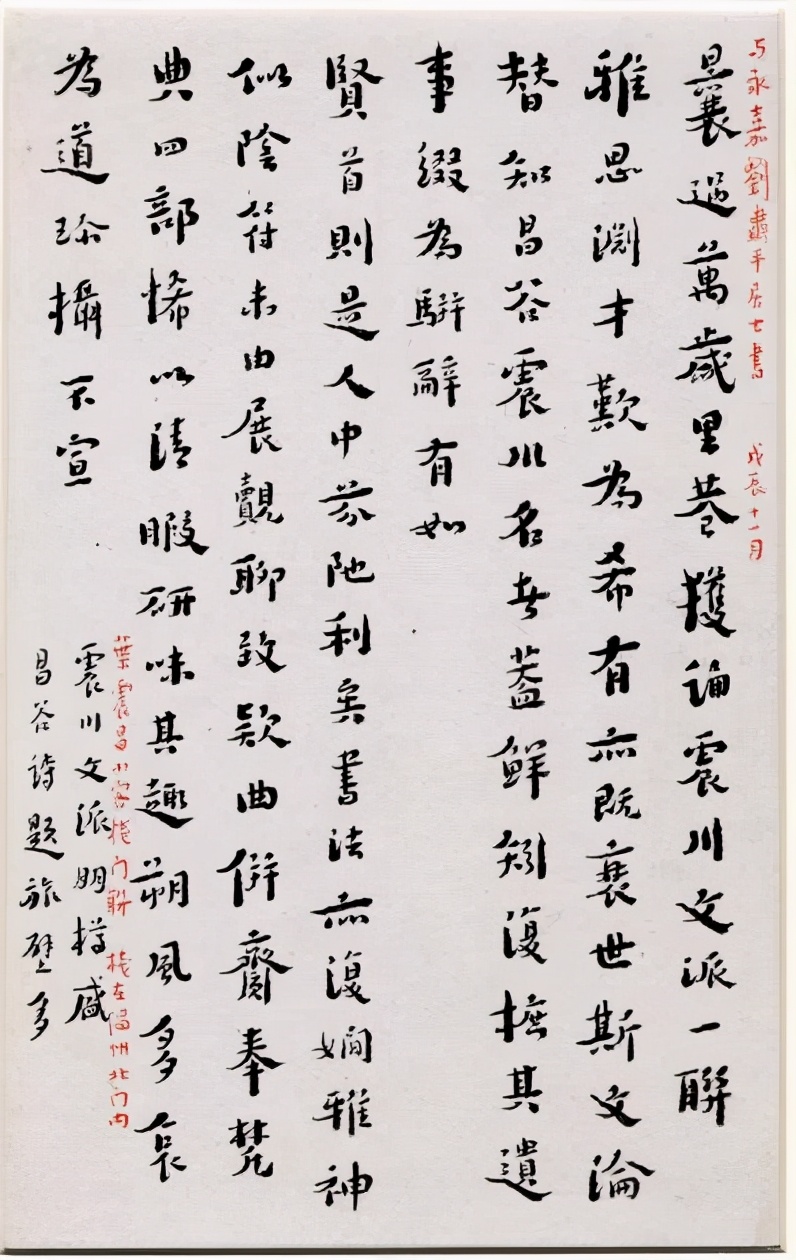 与永嘉劉蠡平居士書　戊辰十一月
曩過萬歲里巷獲誦震川文派一聯
雅思淵才歎為希有亦既衰世斯文淪
替知昌谷震川名者蓋鮮矧復摭其遺
事綴為駢辭有如
賢首則是人中芬陀利矣書法亦復嫻雅神
似陰符未由展覿聊致款曲併齎奉梵
典四部悕以清暇研味其趣朔風多哀
為道珍攝不宣
葉震昌小客棧門聯　棧在溫州北門內
震川文派明樽盛
昌谷詩題旅壁多